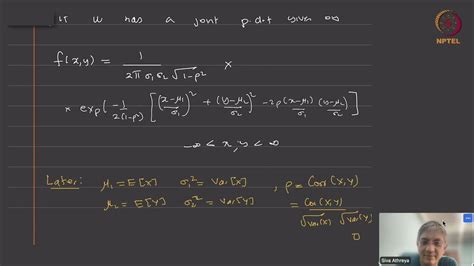 it has a joint p.d.f given as
NPTEL
f(x,y) = 1 / (2π σ₁ σ₂ √(1-ρ²)) ×
× exp(-1/(2(1-ρ²)) [((x-μ₁)/σ₁)² + ((y-μ₂)/σ₂)² - 2ρ (x-μ₁)/σ₁ (y-μ₂)/σ₂])
-∞ < x, y < ∞
Later: μ₁ = E[X] σ₁² = Var[X] , ρ = Corr(X,Y)
μ₂ = E[Y] σ₂² = Var[Y] = Cov(X,Y) / (√Var(X) √Var(Y))
Siva Athreya